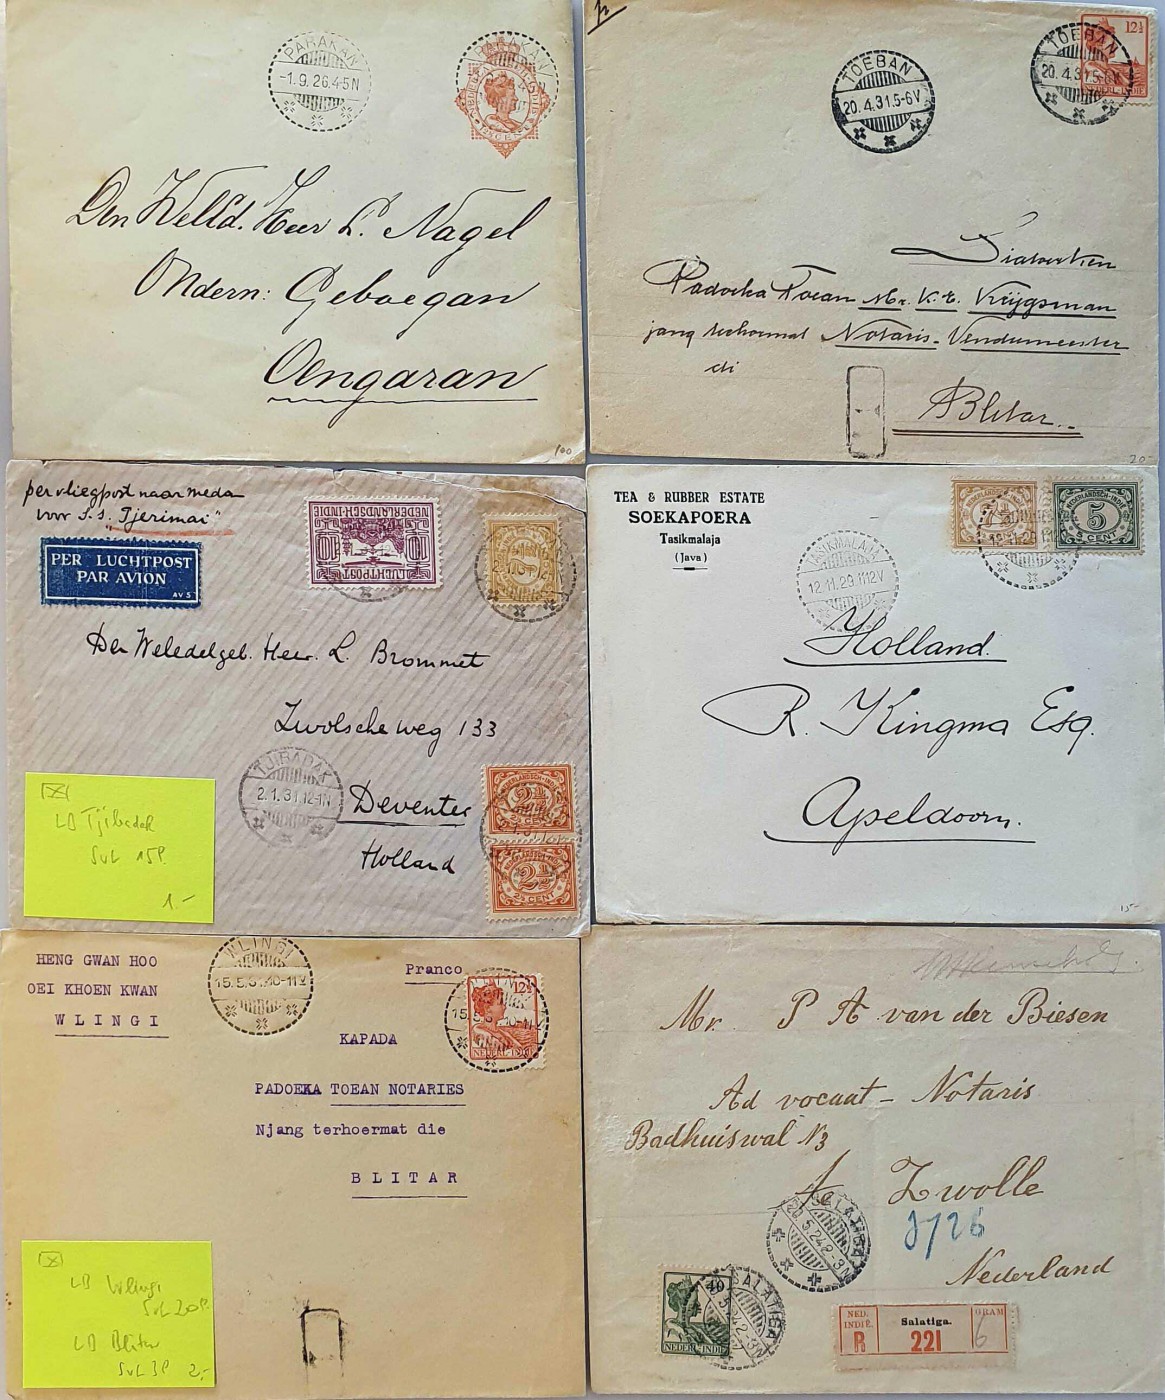 PARAKAN
-1.9.26.4-5N
PARAKAN
Den WelEd. Heer L. Nagel
Ondern: Geboegan
Oengaran
100
TOEBAN
20.4.31.5-6V
TOEBAN
20.4.31.5-6V
12½
NEDERL-INDIE
Padoeka Toean Mr. K. E. Krijgsman
jang terhormat Notaris-Vendumeester
di
Blitar..
20-
per vliegpost naar Medan
voor S.S. "Tjerimai"
PER LUCHTPOST
PAR AVION
AV 5
NEDERLANDSCH-INDIE
10
LUCHTPOST
10
Den Weledelgeb. Heer. L. Brommet
Zwolsche weg 133
Deventer
Holland
TJIBADAK
2.1.31.12-1N
NEDERLANDSCH-INDIE
2½
2½ CENT
NEDERLANDSCH-INDIE
2½
2½ CENT
LB Tjibadak
SvL 15P.
1.-
TEA & RUBBER ESTATE
SOEKAPOERA
Tasikmalaja
(Java)
TASIKMALAJA
12.11.29.11-12V
7½
NEDERLANDSCH-INDIE
5
5 CENT
Holland.
R. Kingma Esq.
Apeldoorn.
15-
HENG GWAN HOO
OEI KHOEN KWAN
WLINGI
WLINGI
Franco
12½
NEDERL-INDIE
KAPADA
PADOEKA TOEAN NOTARIES
Njang terhoermat die
BLITAR
LB Wlingi
SvL 20P.
LB Blitar
SvL 3P 2,-
Mr. P A van der Biesen
Advocaat - Notaris
Badhuiswal N3
Te Zwolle
Nederland
SALATIGA
20.5.24.2-3N
40
NEDERL-INDIE
SALATIGA
NED.
INDIË.
R
Salatiga.
221
GRAM
6